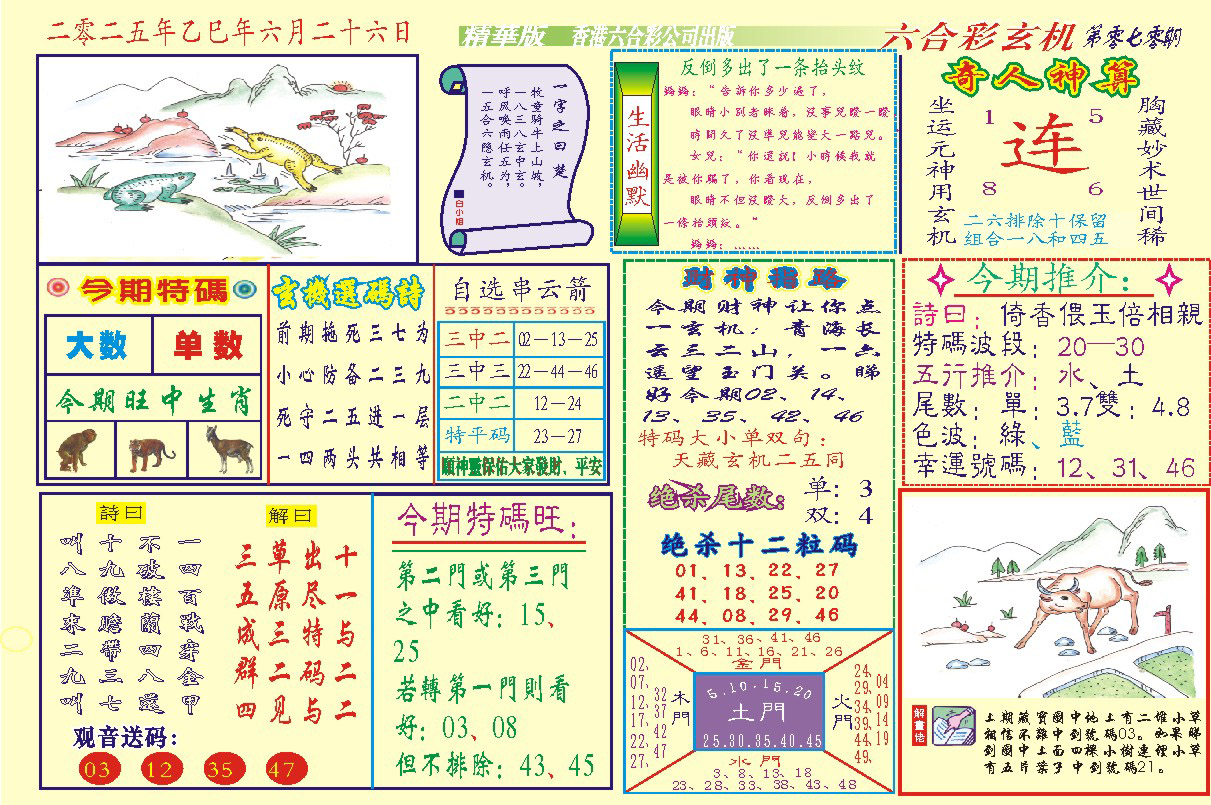 二零二五年乙巳年六月二十六日
精華版 香港六合彩公司出版
六合彩玄机 第零七零期
一字之曰楚
牧童騎牛上山坡，
一八三八玄中玄。
呼风唤雨任五为，
一五合六隐玄机。
白小姐
生活幽默
反倒多出了一条抬头纹
編編：“告訴你多少遍了，
眼睛小别老眯着，沒事兒瞪一瞪
時間久了沒準兒能變大一路兒。
女兒：“你還説！小時候我就
是被你騙了，你看現在，
眼睛不但沒瞪大，反倒多出了
一條抬頭紋。“
編編：……
奇人神算
坐运元神用玄机
1 5
连
8 6
胸藏妙术世间稀
二六排除十保留
组合一八和四五
今期特碼
大数 单数
今期旺中生肖
玄機選碼詩
前期拖死三七为
小心防备二三九
死守二五进一层
一四两头共相等
自选串云箭
三中二 02—13—25
三中三 22—44—46
二中二 12—24
特平码 23—27
願神靈保佑大家發財、平安
财神指路
今期财神让你点
一玄机：青海长
云三二山，一六
遥望玉门关。睇
好今期02、14、
13、35、42、46
特码大小单双句：
天藏玄机二五同
绝杀尾数：
单：3
双：4
绝杀十二粒码
01、13、22、27
41、18、25、20
44、08、29、46
今期推介：
詩曰：倚香偎玉倍相親
特碼波段：20—30
五行推介：水、土
尾數：單：3.7雙：4.8
色波：綠、藍
幸運號碼：12、31、46
詩曰
一四百戰穿金甲
不破楼蘭四八還
十九做膽帶三七
叫八準來二九叫
解曰
十一与二二
出尽特码与
草原三二见
三五成群四
观音送码：
03 12 35 47
今期特碼旺：
第二門或第三門
之中看好：15、
25
若轉第一門則看
好：03、08
但不排除：43、45
31、36、41、46
1、6、11、16、21、26
金門
02、07、12、17、22、27、
32、37、42、47
木門
5.10.15.20
土門
25.30.35.40.45
火門
24、29、34、39、44、49、
04、09、14、19
水門
3、8、13、18
23、28、33、38、43、48
解畫佬
上期藏寳圖中地上有二堆小草
相信不難中到號碼03。如果睇
到圖中上面四棵小樹連裡小草
有五片葉子中到號碼21。